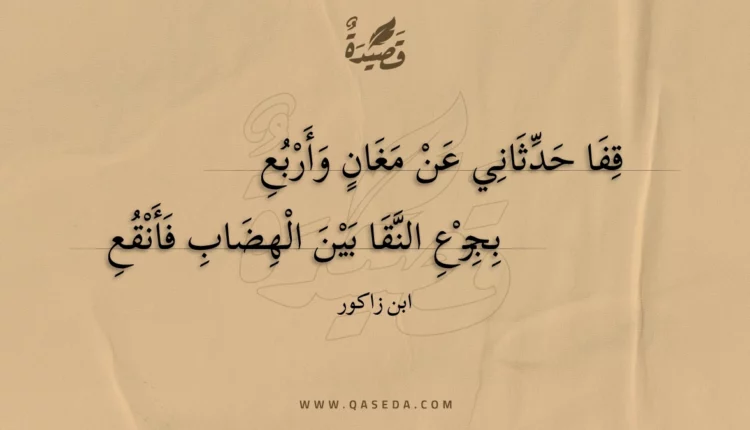 قَصِيدَةٌ
قِفَا حَدِّثَانِي عَنْ مَغَانٍ وَأَرْبُعِ
بِجِزْعِ النَّقَا بَيْنَ الْهِضَابِ فَأَنْقُعِ
ابن زاكور
WWW.QASEDA.COM